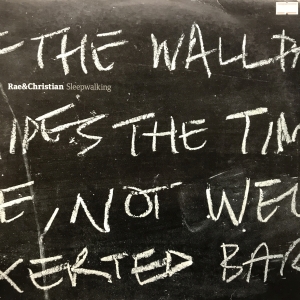 F THE WALLP
Rae&Christian Sleepwalking
IDES THE TIM
E, NOT WEL
XERTED BAR